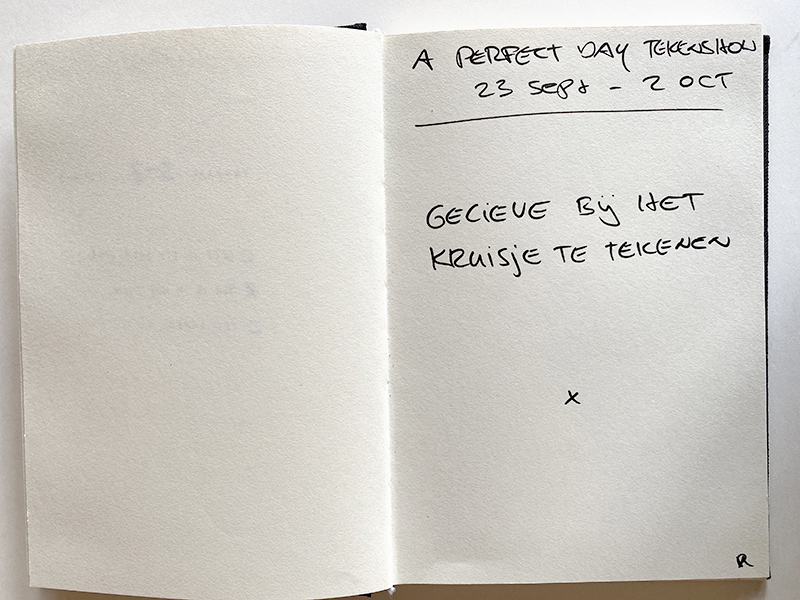 A PERFECT DAY TEKENSHOW
23 Sept - 2 OCT
GELIEVE Bij HET
KRUISJE TE TEKENEN
x
R